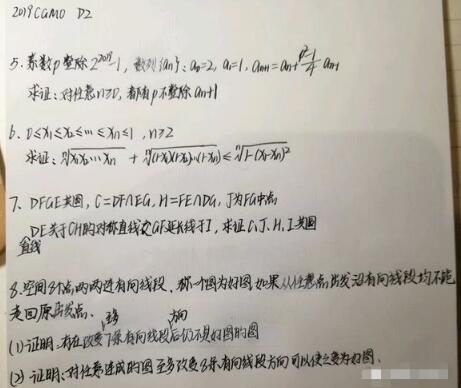 2019 CGMO D2
5. 素数p整除2^2019-1, 数列{an}: a0=2, a1=1, an+1=an+(p²-1)/4 an-1
求证:对任意n≥0, 都有p不整除an+1
6. 0≤x1≤x2≤…≤xn≤1, n≥2
求证: ⁿ√(x1x2…xn) + ⁿ√((1-x1)(1-x2)…(1-xn)) ≤ ⁿ√(1-(x1-xn)²)
7、DFGE共圆, C=DF∩EG, H=FE∩DG, J为FG中点
DE关于CH的对称直线交GF延长线于I, 求证C、J、H、I共圆
直线
8.空间8个点两两连有向线段, 称一个图为好图如果从任意点出发沿有向线段均不能
走回原出发点、
方向
(1)证明:存在改变7条有向线段后仍不是好图的图
(2) 证明:对任意连成的图至多改变8条有向线段方向可以使之变为好图.